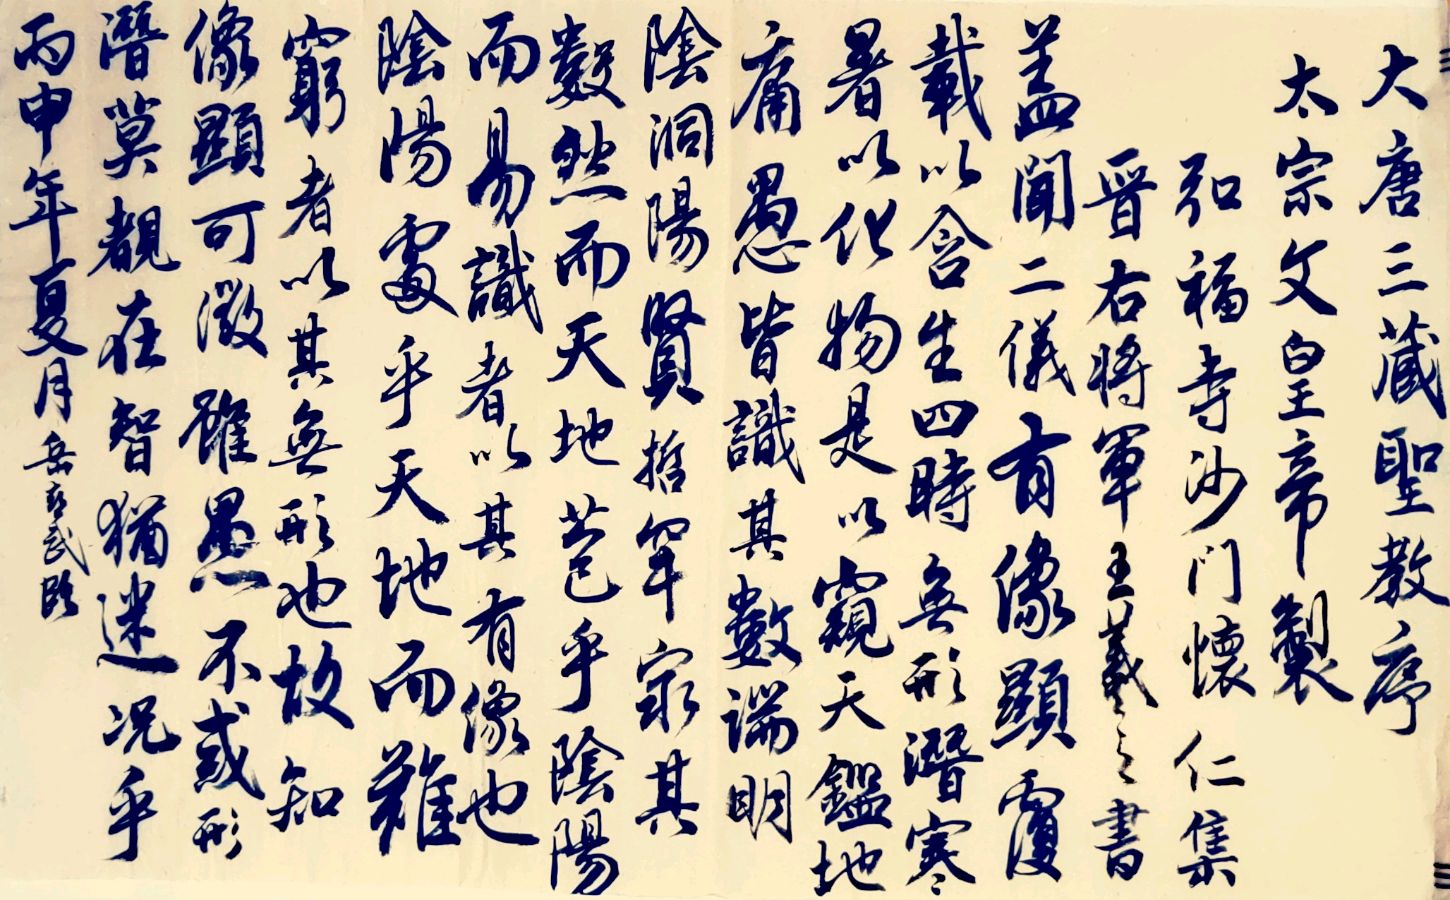 大唐三藏聖教序
太宗文皇帝製
弘福寺沙門懷仁集
晉右將軍王羲之書
蓋聞二儀有像顯覆
載以含生四時無形潛寒
暑以化物是以窺天鑑地
庸愚皆識其數端明
陰洞陽賢哲罕窮其
數然而天地苞乎陰陽
而易識者以其有像也
陰陽處乎天地而難
窮者以其無形也故知
像顯可徵雖愚不惑形
潛莫覩在智猶迷况乎
丙申年夏月岳武臨